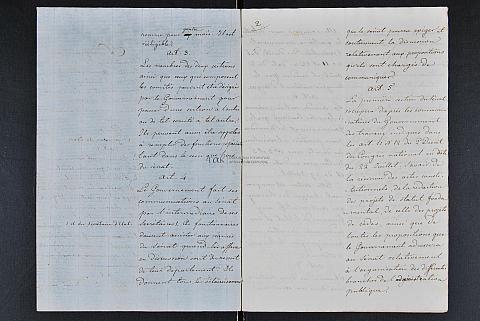 nommé pour quatre mois. Il est
rééligible.
Art 3
Les membres des deux sections
ainsi que ceux qui composent
les comités peuvent être désignés
par le Gouvernement pour
passer d'une section à l'autre
ou de tel comité à tel autre.
Ils peuvent aussi être appelés
à remplir des fonctions
tant dans le sein que hors
du sénat.
Art. 4
Le Gouvernement fait ses
communications au Sénat
par l'intermédiaire de ses
Secrétaires. Ces fonctionnaires
doivent assister aux séances
du Sénat quand les affaires
en discussion sont du ressort
de leur département. Ils
donnent tous les éclaircissemens
2
que le Sénat pourra exiger et
soutiennent la discussion
relativement aux propositions
qu'ils sont chargés de
communiquer.
Art 5
La première section du Sénat
s'occupera d'après les
du Gouvernement
des travaux indiqués dans
les art 11 & 12 du Décret
du Congrès national en date
du 23 Juillet, savoir: de
la des actes
de la rédaction
des projets de statut fonda-
mental, de celle des projets
de codes, ainsi que de
toutes les propositions que
le Gouvernement adressera
au Sénat relativement
à l'organisation des différentes
branches de l'administration
publique.